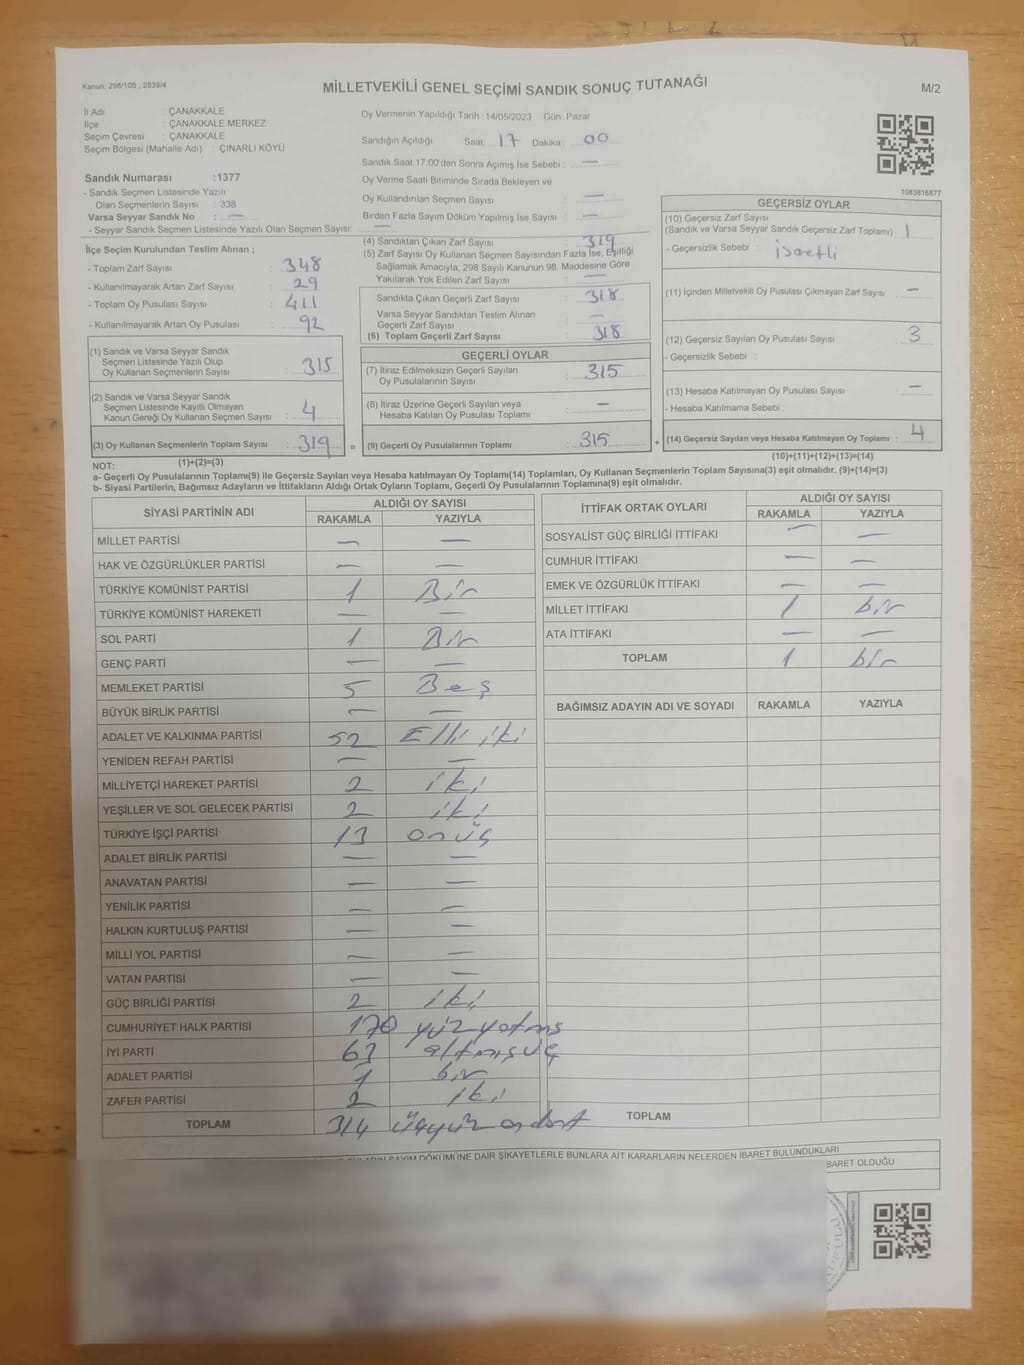 Kanun; 298/105 , 2839/4
MİLLETVEKİLİ GENEL SEÇİMİ SANDIK SONUÇ TUTANAĞI
M/2
İl Adı : ÇANAKKALE
İlçe : ÇANAKKALE MERKEZ
Seçim Çevresi : ÇANAKKALE
Seçim Bölgesi (Mahalle Adı) : ÇINARLI KÖYÜ
Oy Vermenin Yapıldığı Tarih :14/05/2023 Gün: Pazar
Sandığın Açıldığı Saat: 17 Dakika: 00
Sandık Saat 17:00'den Sonra Açımış İse Sebebi : —
Oy Verme Saati Bitiminde Sırada Bekleyen ve
Oy Kullandırılan Seçmen Sayısı : —
Birden Fazla Sayım Döküm Yapılmış İse Sayısı : —
Sandık Numarası :1377
- Sandık Seçmen Listesinde Yazılı
Olan Seçmenlerin Sayısı : 338
Varsa Seyyar Sandık No : —
- Seyyar Sandık Seçmen Listesinde Yazılı Olan Seçmen Sayısı: —
1083816877
İlçe Seçim Kurulundan Teslim Alınan ;
- Toplam Zarf Sayısı : 348
- Kullanılmayarak Artan Zarf Sayısı : 29
- Toplam Oy Pusulası Sayısı : 411
- Kullanılmayarak Artan Oy Pusulası : 92
(1) Sandık ve Varsa Seyyar Sandık
Seçmen Listesinde Yazılı Olup
Oy Kullanan Seçmenlerin Sayısı : 315
(2) Sandık ve Varsa Seyyar Sandık
Seçmen Listesinde Kayıtlı Olmayan
Kanun Gereği Oy Kullanan Seçmen Sayısı : 4
(3) Oy Kullanan Seçmenlerin Toplam Sayısı : 319
(1)+(2)=(3)
(4) Sandıktan Çıkan Zarf Sayısı : 319
(5) Zarf Sayısı Oy Kullanan Seçmen Sayısından Fazla İse, Eşitliği
Sağlamak Amacıyla; 298 Sayılı Kanunun 98. Maddesine Göre
Yakılarak Yok Edilen Zarf Sayısı : —
Sandıkta Çıkan Geçerli Zarf Sayısı : 318
Varsa Seyyar Sandıktan Teslim Alınan
Geçerli Zarf Sayısı : —
(6) Toplam Geçerli Zarf Sayısı : 318
GEÇERLİ OYLAR
(7) İtiraz Edilmeksizin Geçerli Sayılan
Oy Pusulalarının Sayısı : 315
(8) İtiraz Üzerine Geçerli Sayılan veya
Hesaba Katılan Oy Pusulası Toplamı : —
= (9) Geçerli Oy Pusulalarının Toplamı : 315
GEÇERSİZ OYLAR
(10) Geçersiz Zarf Sayısı
(Sandık ve Varsa Seyyar Sandık Geçersiz Zarf Toplamı) : 1
- Geçersizlik Sebebi : isaretli
(11) İçinden Milletvekili Oy Pusulası Çıkmayan Zarf Sayısı : —
(12) Geçersiz Sayılan Oy Pusulası Sayısı : 3
- Geçersizlik Sebebi :
(13) Hesaba Katılmayan Oy Pusulası Sayısı : —
- Hesaba Katılmama Sebebi :
+ (14) Geçersiz Sayılan veya Hesaba Katılmayan Oy Toplamı : 4
(10)+(11)+(12)+(13)=(14)
NOT:
a- Geçerli Oy Pusulalarının Toplamı(9) ile Geçersiz Sayılan veya Hesaba katılmayan Oy Toplamı(14) Toplamları, Oy Kullanan Seçmenlerin Toplam Sayısına(3) eşit olmalıdır. (9)+(14)=(3)
b- Siyasi Partilerin, Bağımsız Adayların ve İttifakların Aldığı Ortak Oyların Toplamı, Geçerli Oy Pusulalarının Toplamına(9) eşit olmalıdır.
SİYASİ PARTİNİN ADI ALDIĞI OY SAYISI
RAKAMLA YAZIYLA
MİLLET PARTİSİ — —
HAK VE ÖZGÜRLÜKLER PARTİSİ — —
TÜRKİYE KOMÜNİST PARTİSİ 1 Bir
TÜRKİYE KOMÜNİST HAREKETİ — —
SOL PARTİ 1 Bir
GENÇ PARTİ — —
MEMLEKET PARTİSİ 5 Beş
BÜYÜK BİRLİK PARTİSİ — —
ADALET VE KALKINMA PARTİSİ 52 Elli iki
YENİDEN REFAH PARTİSİ — —
MİLLİYETÇİ HAREKET PARTİSİ 2 iki
YEŞİLLER VE SOL GELECEK PARTİSİ 2 iki
TÜRKİYE İŞÇİ PARTİSİ 13 onüç
ADALET BİRLİK PARTİSİ — —
ANAVATAN PARTİSİ — —
YENİLİK PARTİSİ — —
HALKIN KURTULUŞ PARTİSİ — —
MİLLİ YOL PARTİSİ — —
VATAN PARTİSİ — —
GÜÇ BİRLİĞİ PARTİSİ 2 iki
CUMHURİYET HALK PARTİSİ 170 yüz yetmiş
İYİ PARTİ 63 altmışüç
ADALET PARTİSİ 1 bir
ZAFER PARTİSİ 2 iki
TOPLAM 314 üçyüz ondört
İTTİFAK ORTAK OYLARI ALDIĞI OY SAYISI
RAKAMLA YAZIYLA
SOSYALİST GÜÇ BİRLİĞİ İTTİFAKI — —
CUMHUR İTTİFAKI — —
EMEK VE ÖZGÜRLÜK İTTİFAKI — —
MİLLET İTTİFAKI 1 bir
ATA İTTİFAKI — —
TOPLAM 1 bir
BAĞIMSIZ ADAYIN ADI VE SOYADI RAKAMLA YAZIYLA
TOPLAM
SAYIM DÖKÜMÜNE DAİR ŞİKAYETLERLE BUNLARA AİT KARARLARIN NELERDEN İBARET BULUNDUKLARI
İBARET OLDUĞU